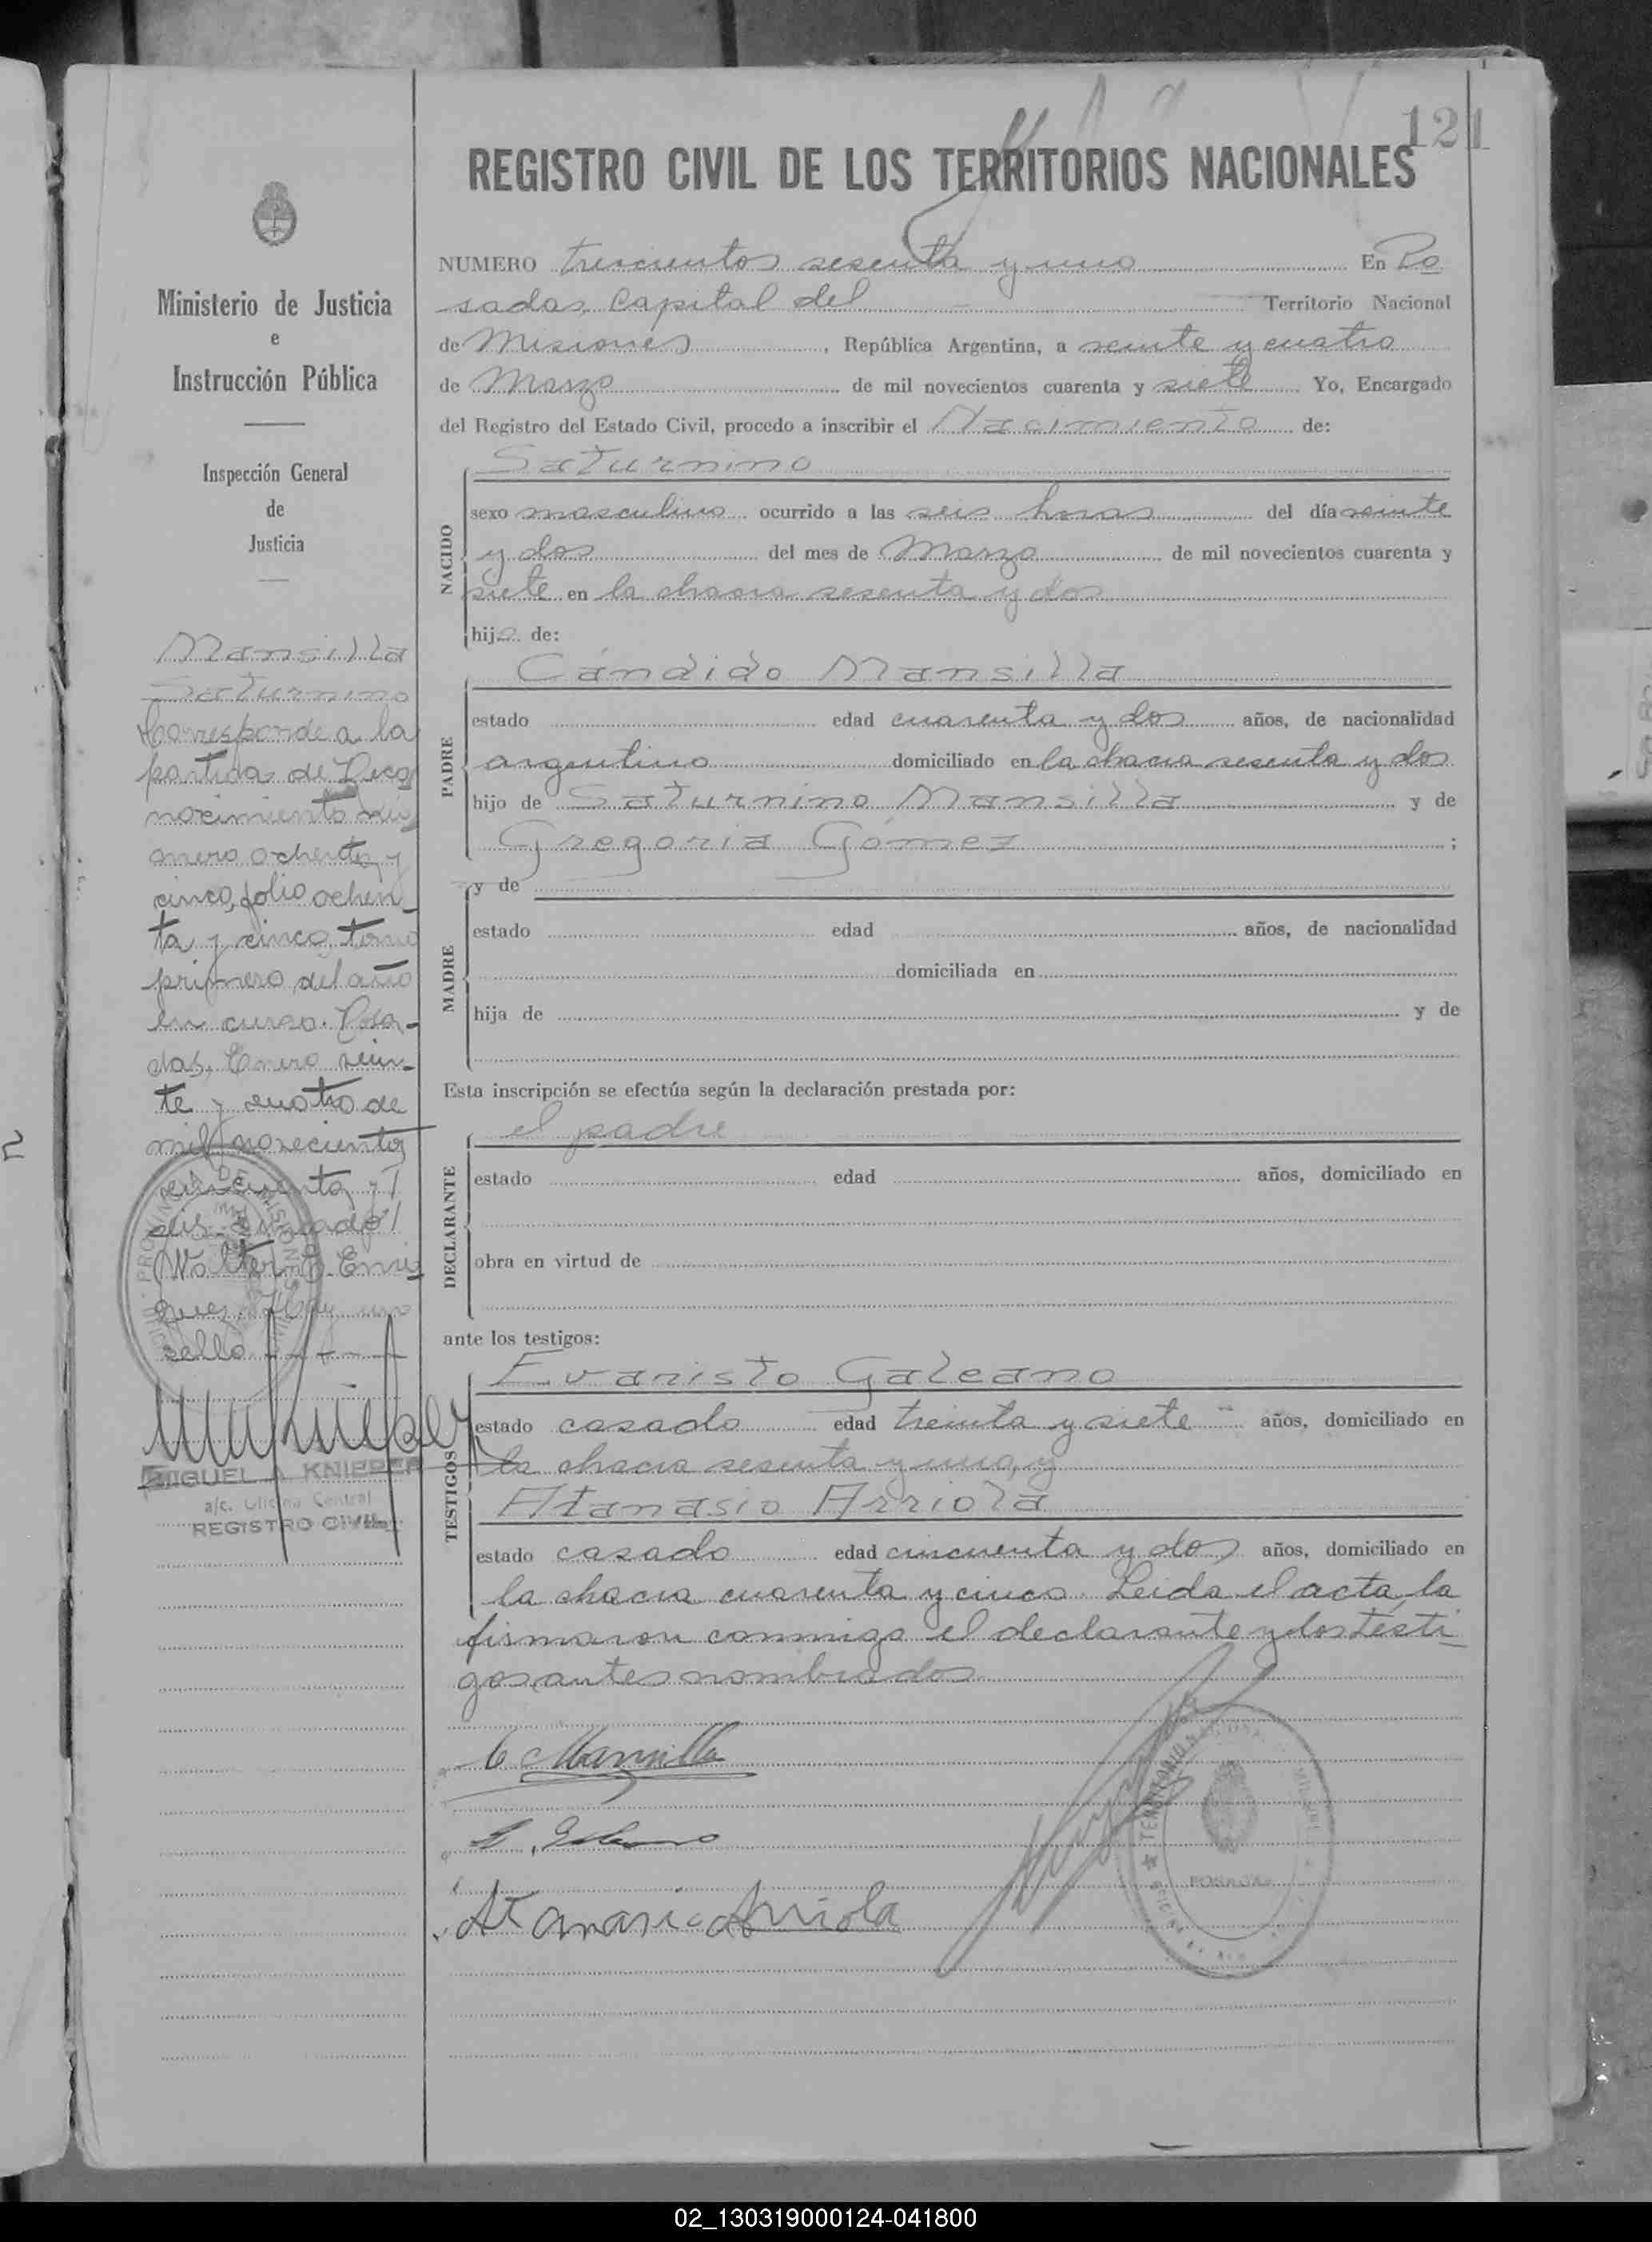 121
REGISTRO CIVIL DE LOS TERRITORIOS NACIONALES
Ministerio de Justicia
e
Instrucción Pública
Inspección General
de
Justicia
Mansilla
Saturnino
Corresponde a la
partida de Reco
nocimiento nú
mero ochenta y
cinco, folio ochen_
ta y cinco, tomo
primero del año
en curso. Posa-
das, Enero vein_
te y cuatro de
mil novecientos
cincuenta y
seis
Walter Enri
quez. Hay un
sello
MIGUEL A. KNIEPER
a/c. Oficina Central
REGISTRO CIVIL
NUMERO trescientos sesenta y uno En Po
sadas, Capital del Territorio Nacional
de Misiones, República Argentina, a veinte y cuatro
de Marzo de mil novecientos cuarenta y siete Yo, Encargado
del Registro del Estado Civil, procedo a inscribir el Nacimiento de:
NACIDO
Saturnino
sexo masculino ocurrido a las seis horas del día veinte
y dos del mes de Marzo de mil novecientos cuarenta y
siete en la chacra sesenta y dos
hijo de:
PADRE
Cándido Mansilla
estado edad cuarenta y dos años, de nacionalidad
argentino domiciliado en la chacra sesenta y dos
hijo de Saturnino Mansilla y de
Gregoria Gómez ;
MADRE
y de
estado edad años, de nacionalidad
domiciliada en
hija de y de
Esta inscripción se efectúa según la declaración prestada por:
DECLARANTE
el padre
estado edad años, domiciliado en
obra en virtud de
ante los testigos:
TESTIGOS
Evaristo Galeano
estado casado edad treinta y siete años, domiciliado en
la chacra sesenta y uno, y
Atanasio Arriola
estado casado edad cincuenta y dos años, domiciliado en
la chacra cuarenta y cinco. Leida el acta, la
firmaron conmigo el declarante y los testi_
gos antes nombrados
C. Mansilla
E. Galeano
Atanasio Arriola
TERRITORIO NACIONAL
POSADAS
02_130319000124-041800